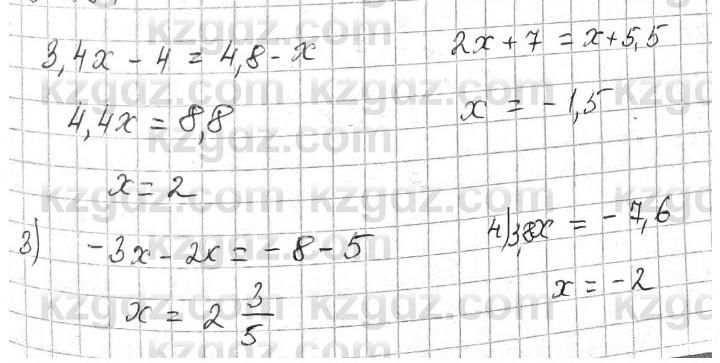 3,4x - 4 = 4,8 - x
4,4x = 8,8
x = 2
2x + 7 = x + 5,5
x = -1,5
3) -3x - 2x = -8 - 5
x = 2 3/5
4) 3,8x = -7,6
x = -2
kzgdz.com